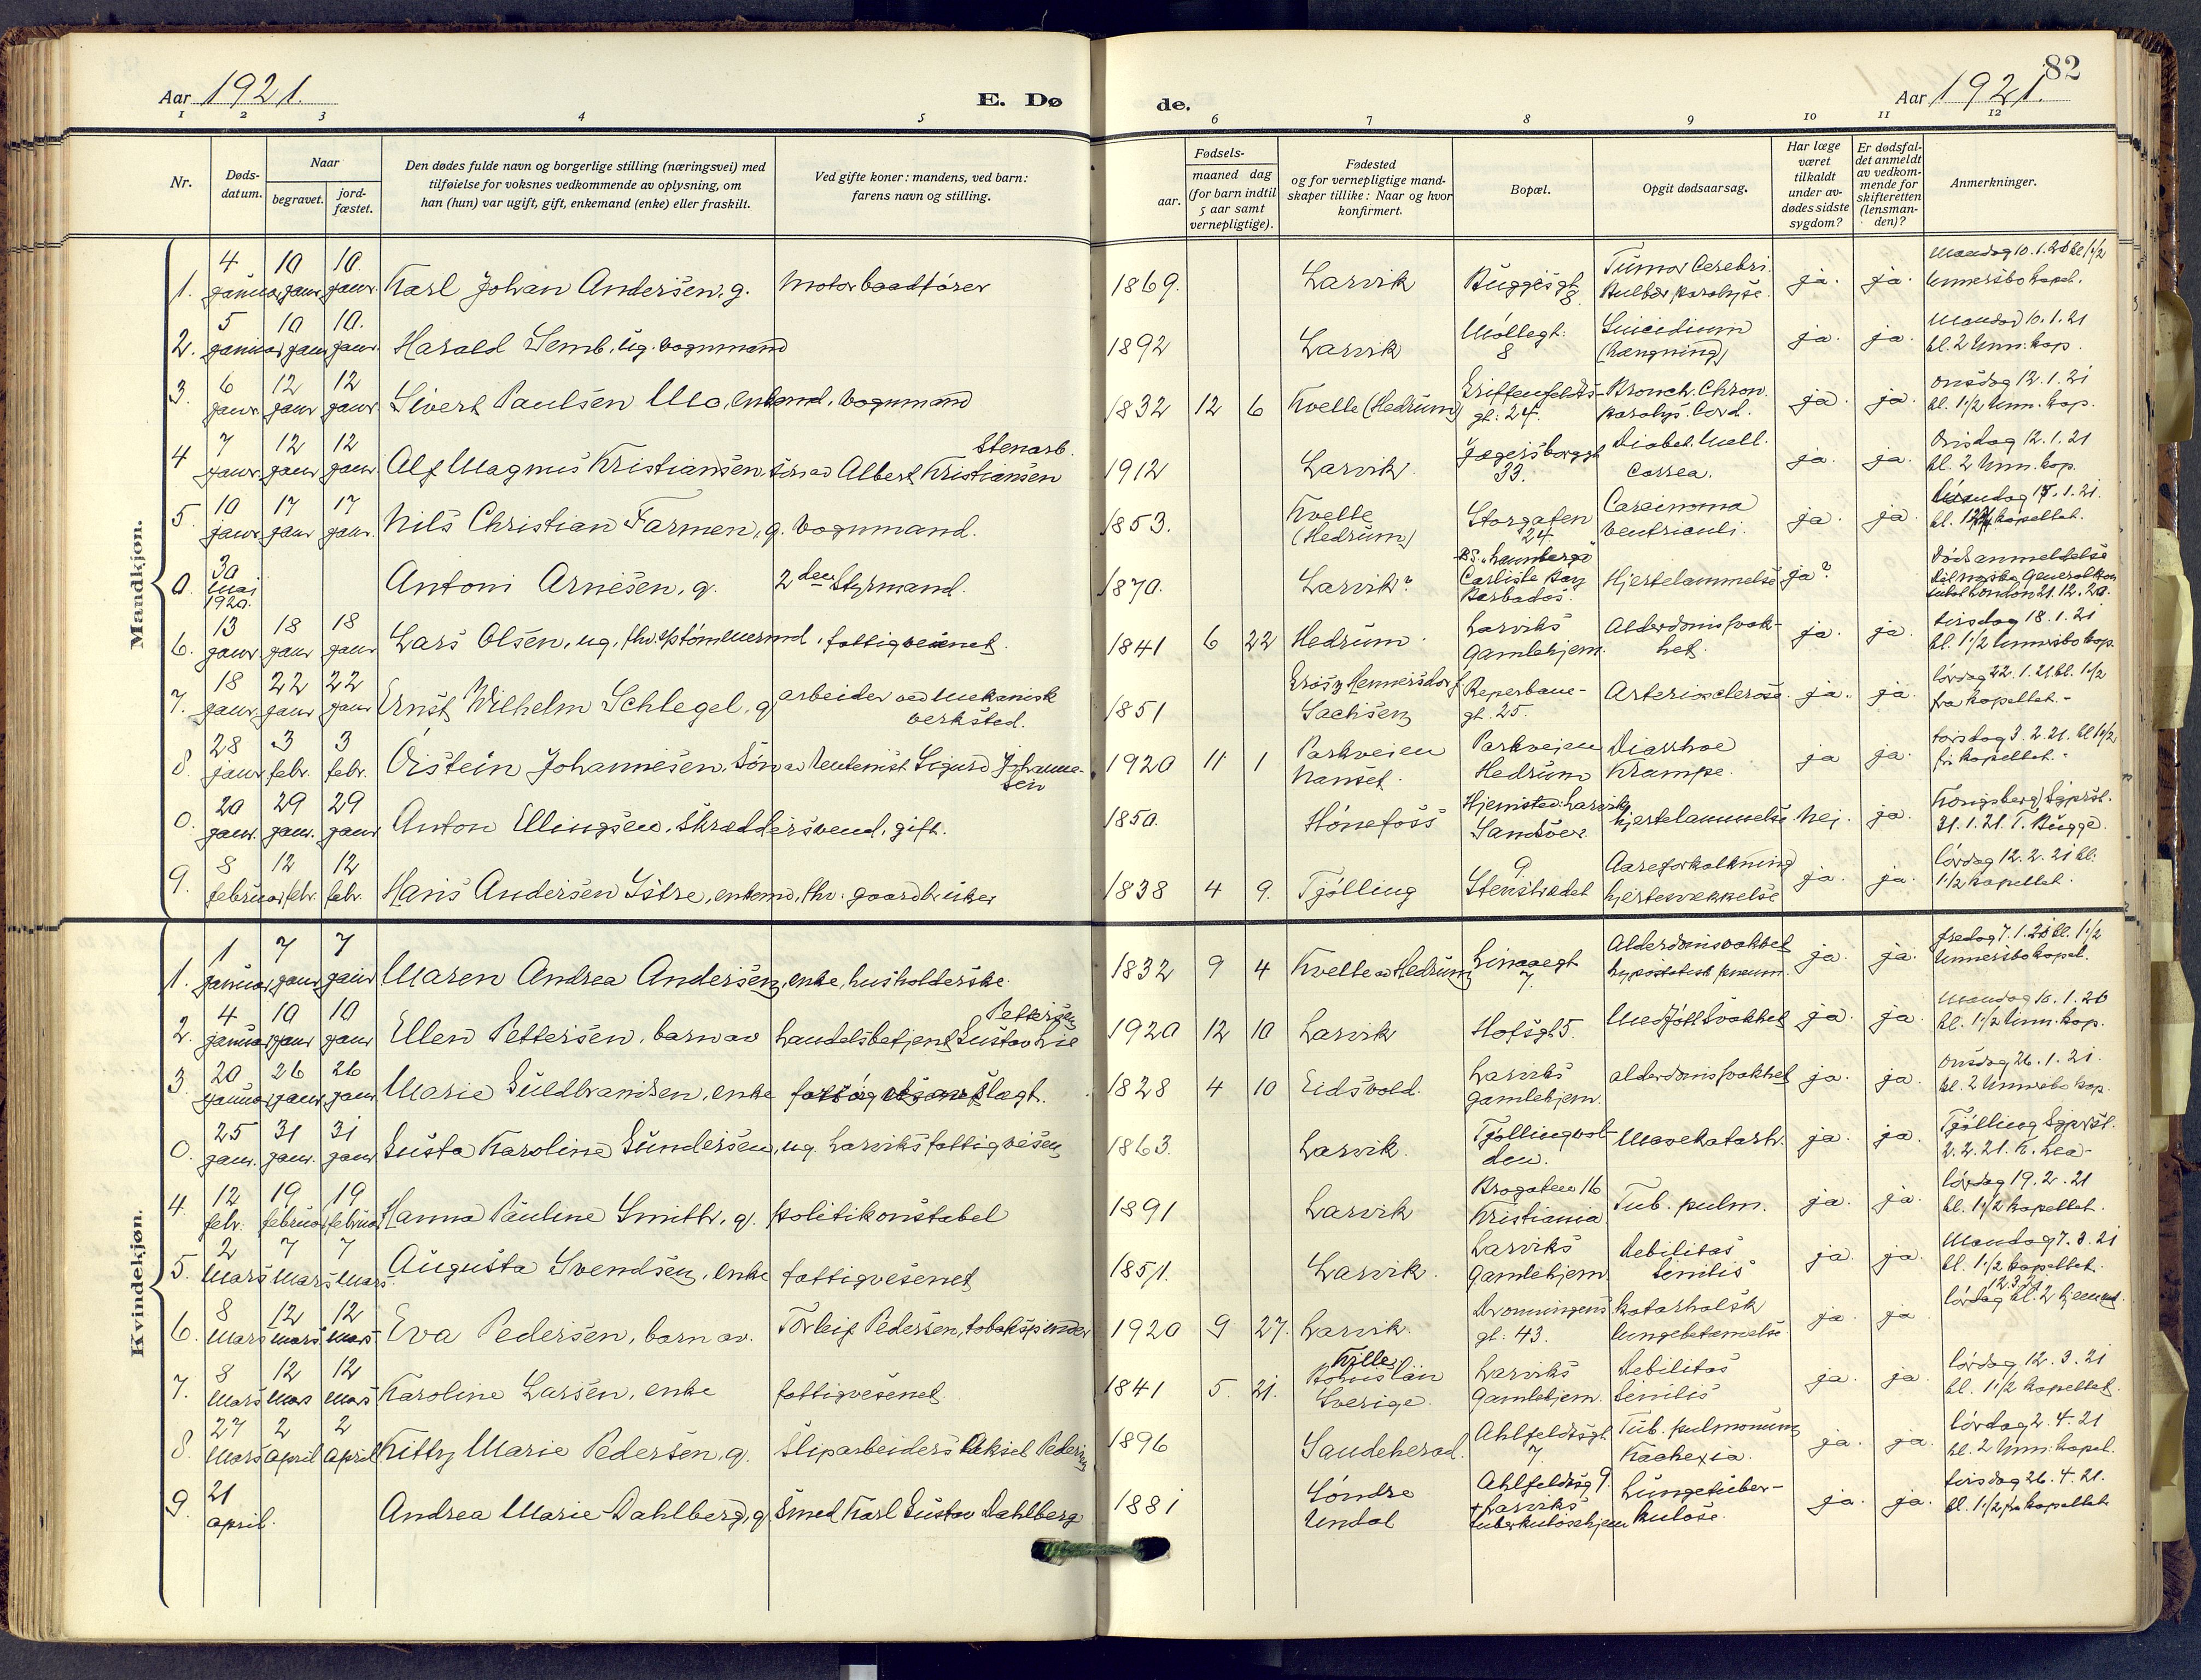 82
Aar 1921. E. Dø de. Aar 1921.
1 2 3 4 5 6 7 8 9 10 11 12
Nr. Døds-datum. Naar begravet. jord-fæstet. Den dødes fulde navn og borgerlige stilling (næringsvei) med tilføielse for voksnes vedkommende av oplysning, om han (hun) var ugift, gift, enkemand (enke) eller fraskilt. Ved gifte koner: mandens, ved barn: farens navn og stilling. Fødsels- aar. maaned dag (for barn indtil 5 aar samt vernepligtige). Fødested og for vernepligtige mand-skaper tillike: Naar og hvor konfirmert. Bopæl. Opgit dødsaarsag. Har læge været tilkaldt under av-dødes sidste sygdom? Er dødsfal-det anmeldt av vedkom-mende for skifteretten (lensman-den)? Anmerkninger.
Mandkjøn.
1. 4 januar 10 janr 10. janr. Karl Johan Andersen, g. Motorbaadfører 1869. Larvik Buggesgt 8. Tumor Cerebri. Bulbær paralyse. ja. ja. Mandag 10.1.21 kl 1 1/2 Unnersbo kapel.
2. 5 januar 10 janr 10. janr. Harald Semb, ug. vognmand 1892 Larvik Møllegt. 8 Suicidium (hængning) ja. ja. Mandag 10.1.21 kl. 2 Unn. kap.
3. 6 janr. 12 janr 12 janr Sivert Paulsen Mo, enkemd, vognmand 1832 12 6 Kvelle (Hedrum) Griffenfeldts-gt. 24. Bronch. Chron. paralys. Cord. ja. ja. onsdag 12.1.21 kl. 1 1/2 Unn. kap.
4 7 janr. 12 janr 12 janr. Alf Magnus Kristiansen, søn av Albert Kristiansen Stenarb. 1912 Larvik. Jegersborggt 33. Diabet. Mell. Correa. ja. ja. Onsdag 12.1.21 kl. 2 Unn. kap.
5. 10 janr. 17 janr 17 janr. Nils Christian Farmen, g. vognmand. 1853. Kvelle (Hedrum) Storgaten 24. Carcinoma ventriculi. ja. ja. 1.21. kl. kapellet.
0. 30 Mai 1920. Antoni Arnesen, g. 2den Styrmand. 1870. Larvik? Carlisle Bay Barbados. Hjertelammelse ja? Dødsanmeldelse Det norske Generalkonsulat London 21.12.20.
6. 13 janr. 18 janr 18 janr Lars Olsen, ug, fhv. tømmermd, fattigvesenet. 1841 6 22 Hedrum. Larviks Gamlehjem. Alderdomssvak-het. ja. ja. tirsdag 18.1.21 kl. 1 1/2 Unnersbo kap.
7. 18 janr. 22 janr 22 janr Ernst Wilhelm Schlegel, g. arbeider ved Mekanisk verksted. 1851 Gross Hennersdorf Sachsen Reperbane-gt. 25. Arteriosclerose. ja. ja. lørdag 22.1.21 kl. 1 1/2 fra kapellet.-
8. 28 janr 3 febr. 3 febr. Øistein Johannesen, søn av Rentenist Sigurd Johanne-sen 1920 11 1 Parkveien Nanset. Parkveien Hedrum Diarrhoe Krampe. ja ja. torsdag 3.2.21. kl 1 1/2 fr. kapellet.-
0. 20 janr. 29 janr. 29 janr Anton Ellingsen, skræddersvend, gift. 1850. Hønefoss Hjemsted: Larvik Sandsver hjertelammelse. Nej. ja. Kongsberg Sgprst. 31.1.21. T. Bugge.
9. 8 februar 12 febr. 12 febr. Hans Andersen Istre, enkemd, fhv. gaardbruker 1838 4 9. Tjølling 9 Stenstrædet Aareforkalkning hjertesvekkelse ja. ja. lørdag 12.2.21 kl. 1 1/2 kapellet.
Kvindekjøn.
1. 1 januar 7 janr 7 janr Maren Andrea Andersen, enke, husholderske. 1832 9 4 Kvelle av Hedrum Linaaegt 7. Alderdomssvakhet hypostatisk pneum. ja. ja. fredag 7.1.21 kl. 1 1/2 Unnersbo kapel.
2. 4 januar 10 janr 10 janr Ellen Pettersen, barn av handelsbetjent Gustav Lie Pettersen 1920 12 10 Larvik Hofsgt 5. Medfødt Svakhet ja. ja. Mandag 10.1.21 kl. 1 1/2 Unn. kap.
3. 20 januar 26 janr 26 janr. Marie Guldbrandsen, enke slægt. 1828 4 10 Eidsvold. Larviks gamlehjem. alderdomssvakhet ja. ja. onsdag 26.1.21. kl. 2 Unnersbo kap.
0. 25 janr. 31 janr. 31 janr Gusta Karoline Gundersen, ug. Larviks fattigvesen 1863. Larvik. Tjøllingvol-den. Mavekatarh. ja. ja. Tjølling Sgprst. 2.2.21. K. Lea-
4. 12 febr. 19 februar 19 februar Hanna Pauline Smith, g. politikonstabel 1891 Larvik Brogaten 16 Kristiania Tub. pulm. ja. ja. lørdag 19.2.21 kl. 1 1/2 kapellet.
5. 2 Mars 7 Mars 7 Mars. Augusta Svendsen, enke fattigvesenet 1851. Larvik. Larviks Gamlehjem. Debilitas Senilis ja. ja. Mandag 7.3.21 kl. 1 1/2 kapellet.
6. 8 Mars 12 mars 12 mars Eva Pedersen, barn av Torleif Pedersen, tobakspinder 1920 9 27. Larvik. Dronningens gt. 43. katarhalsk lungebetændelse ja. ja lørdag 12.3.21 kl. 2 hjemmet.
7. 8 Mars 12 Mars 12 Mars Karoline Larsen, enke fattigvesenet. 1841 5. 21. Sverige. Larviks Gamlehjem. Debilitas Senilis ja. ja. lørdag 12.3.21 kl. 1 1/2 kapellet.
8. 27 Mars 2 April 2 April Kitty Marie Pedersen, g. Sliparbeider Aksel Pedersen 1896 Saudeherad. Ahlfeldtsgt. 7. Tub. pulmonum Kachexia. ja. ja. lørdag 2.4.21 kl. 2 Unn. kapel.
9. 21 april. Andrea Marie Dahlberg, g. Smed Karl Gustav Dahlberg 1881 Søndre Undal Ahlfeldtsg 9 + Larviks tuberkulosehjem Lungetuber-kulose. ja. ja. tirsdag 26.4.21. kl. 1 1/2 fra kapellet